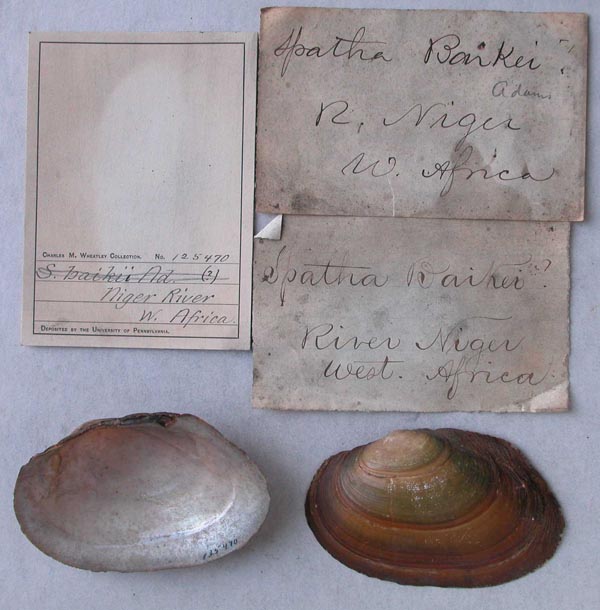 CHARLES M. WHEATLEY COLLECTION. No. 125470
S. baikii Ad. (2)
Niger River
W. Africa.
DEPOSITED BY THE UNIVERSITY OF PENNSYLVANIA.
Spatha Baikei?
Adams
R. Niger
W. Africa
Spatha Baikei?
River Niger
West. Africa.
125470